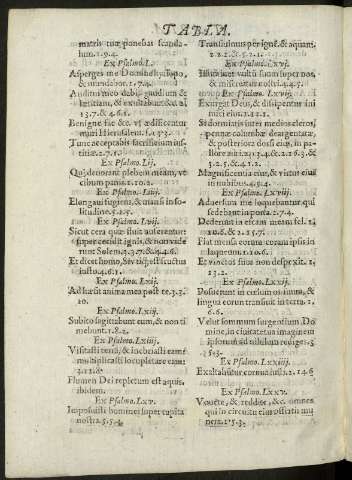 TABLA.
matris tuæ ponebas scanda-
lum.1.9.4.
Ex Psalmo.L.
Asperges me Domine hysopo,
& mundabor.1.7.4.
Auditui meo dabis gaudium &
lætitiam, & exultabunt &c. al
13.7.& 4.6.1.
Benigne fac &c. vt ædificentur
muri Hierusalem.
Tunc acceptabis sacrificium ius-
titiæ.2.7.
Ex Psalmo.Lij.
Qui deuorant plebem meam, vt
cibum panis.1.10.2.
Ex Psalmo.Liiij.
Elongaui fugiens, & mansi in so-
litudine.
Ex Psalmo.Lvij.
Sicut cera quæ fluit auferentur:
super cecidit ignis, & non vide
runt Solem.3.37.& 4.4.6.
Et dicet homo, Si vtique est fructus
iusto.4.6.1.
Ex Psalmo.Lxij.
Adhæsit anima mea post te.3.3.
10.
Ex Psalmo.Lxiij.
Subito sagittabunt eum, & non ti
mebunt.1.8.2.
Ex Psalmo.Lxiiij.
Visitasti terrã, & inebriasti eam:
multiplicasti locupletare eam:
Flumen Dei repletum est aquis.
ibidem.
Ex Psalmo.Lxv.
Imposuisti homines super capita
nostra.5.5.
Transiuimus per ignē, & aquam.
2.2.1.& 5.2.1.
Ex Psalmo.Lxvj.
Illuminet vultũ suum super nos,
& misereatur nostri.4.4.5.
Ex Psalmo.Lxvij.
Exurgat Deus, & dissipentur ini
mici eius.
Si dormiatis inter medios cleros,
pennæ columbæ deargentatæ,
& posteriora dorsi eius, in pal-
lore auri.
Magnificentia eius, & virtus eius
in nubibus.4.9.4.
Ex Psalmo.Lxviij.
Aduersum me loquebantur qui
sedebant in porta.2.7.4.
Dederunt in escam meam fel.
10.6.& 2.15.7.
Fiat mensa eorum coram ipsis in
laqueum.1.10.6.
Et vinctos suos non despexit.1.
13.2.
Ex Psalmo.Lxxij.
Posuerunt in cælum os suum, &
lingua eorum transiuit in terra.1.
6.6.
Velut somnium surgentium Do
mine, in ciuitate tua imaginem
ipsorum ad nihilum rediges.3
Ex Psalmo.Lxxiiij.
Exaltabuntur cornua iusti.2.14.6
Ex Psalmo.Lxxv.
Vouete, & reddite, &c. omnes
qui in circuitu eius affertis mu
nera.2.15.3.